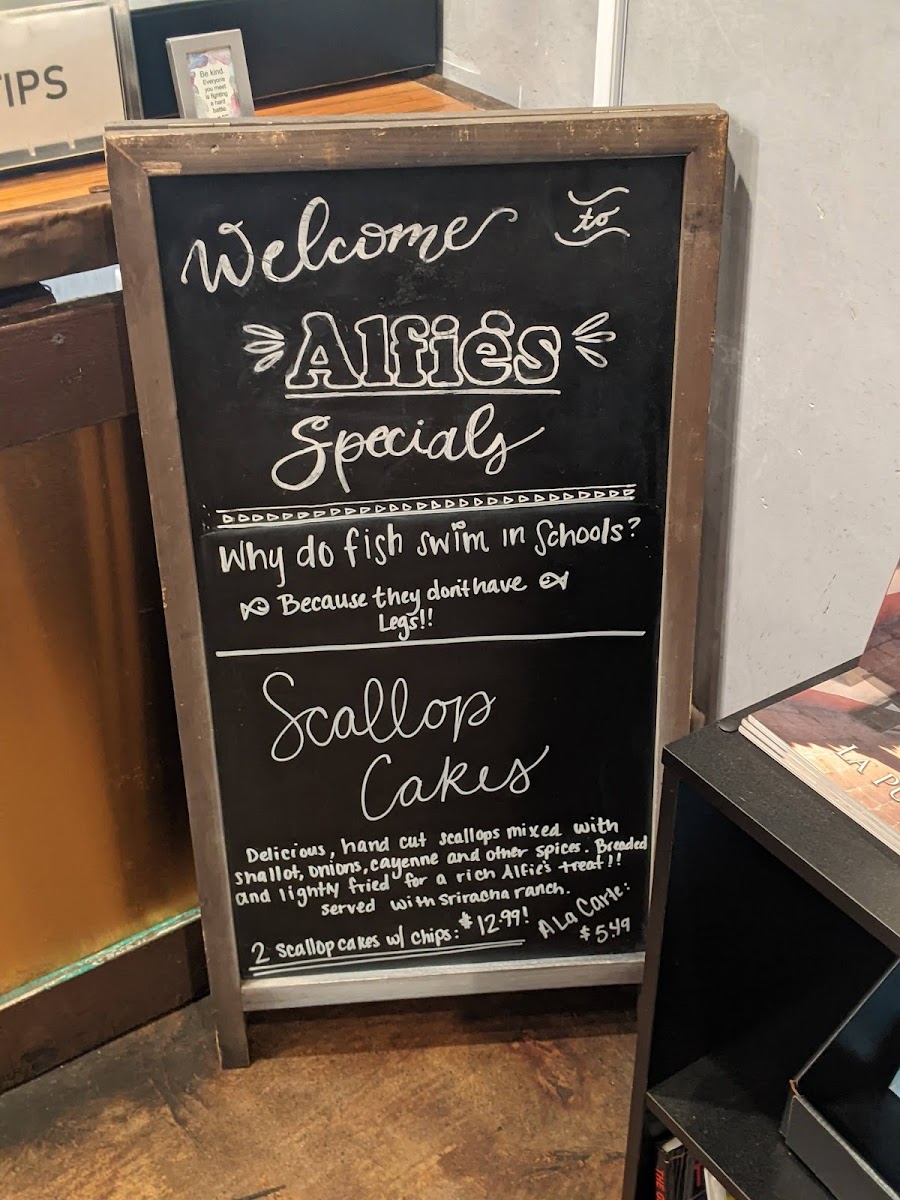 TIPS
Be kind.
Everyone
you meet
is fighting
a hard
battle
Welcome to
Alfie's
Specials
Why do fish swim in schools?
Because they don't have
Legs!!
Scallop
Cakes
Delicious, hand cut scallops mixed with
shallot, onions, cayenne and other spices. Breaded
and lightly fried for a rich Alfie's treat!!
served with sriracha ranch.
2 scallop cakes w/ chips: $12.99!
A La Carte:
$5.49
LA PU
THE